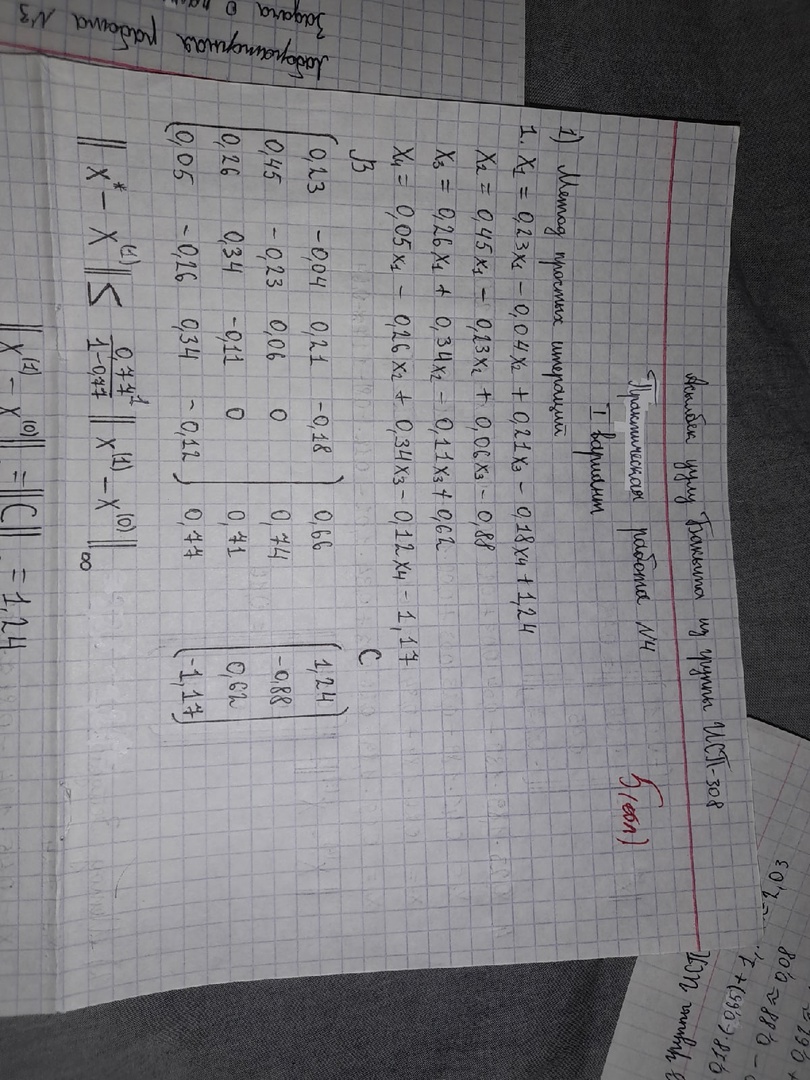 Асылбек уулу Бакыта из группы ИСП-308
Практическая работа №4
I вариант
5(отл)
1) Метод простых итераций
1. x₁ = 0,23x₁ - 0,04x₂ + 0,21x₃ - 0,18x₄ + 1,24
x₂ = 0,45x₁ - 0,23x₂ + 0,06x₃ - 0,88
x₃ = 0,26x₁ + 0,34x₂ - 0,11x₃ + 0,62
x₄ = 0,05x₁ - 0,26x₂ + 0,34x₃ - 0,12x₄ - 1,17
B C
0,23 -0,04 0,21 -0,18 0,66 1,24
0,45 -0,23 0,06 0 0,74 -0,88
0,26 0,34 -0,11 0 0,71 0,62
0,05 -0,26 0,34 -0,12 0,77 -1,17
||x* - x⁽¹⁾|| ≤ 0,77¹/1-0,77 ||x⁽¹⁾ - x⁽⁰⁾||∞
||x⁽¹⁾ - x⁽⁰⁾|| = ||C|| = 1,24
Лабораторная работа №3
Задача о
группы ИСП
0,18(-0,65) + 1,
- 0,88 ≈ 0,08
= 2,03